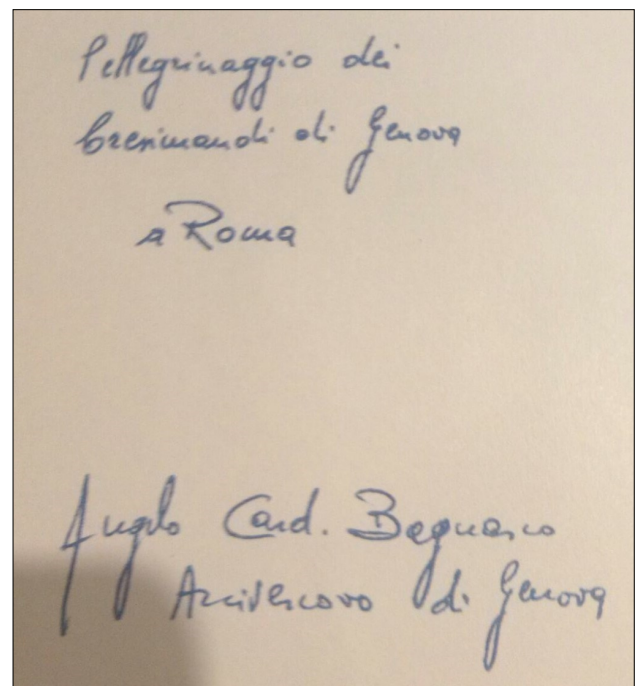 Pellegrinaggio dei
Cresimandi di Genova
a Roma
Angelo Card. Bagnasco
Arcivescovo di Genova